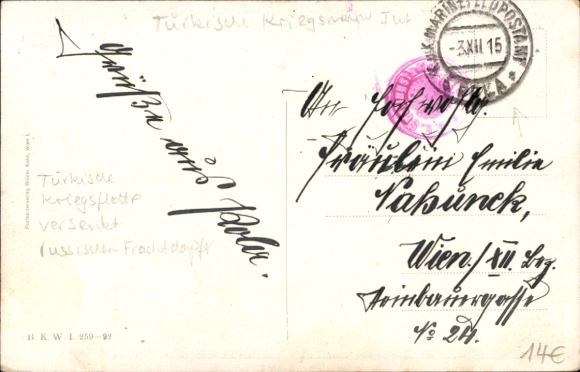 Türkische Kriegsmarine
K.u.K. MARINEFELDPOSTAMT
-3.XII 15
* POLA *
Grüße aus
Pola.
An Hochwohlg.
Fräulein Emilie
Nahunek,
Wien./XII. Bez.
Steinbauergasse
No 24.
Türkische
Kriegsflotte
versenkt
russischen Frachtdampf
Postkartenverlag Brüder Kohn, Wien I.
B. K. W. I. 259-92
14€